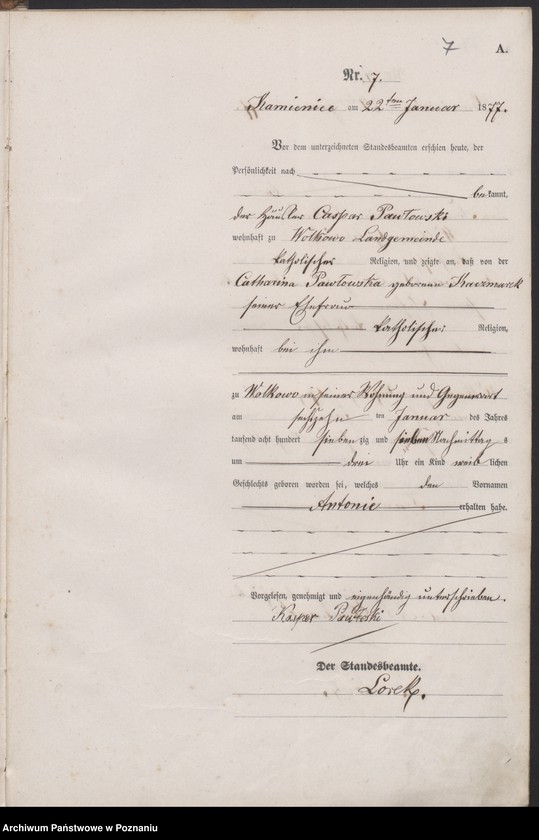 7 A.
Nr. 7.
Kamienice am 22ten Januar 1877.
Vor dem unterzeichneten Standesbeamten erschien heute, der
Persönlichkeit nach
bekannt,
der Häusler Caspar Pawłowski
wohnhaft zu Wolkowo Landgemeinde
katholischer Religion, und zeigte an, daß von der
Catharina Pawłowska geborenen Kaczmarek
seiner Ehefrau
katholischer Religion,
wohnhaft bei ihm
zu Wolkowo in seiner Wohnung und Gegenwart
am sechszehn ten Januar des Jahres
tausend acht hundert sieben zig und sieben Nachmittag s
um drei Uhr ein Kind weib lichen
Geschlechts geboren worden sei, welches den Vornamen
Antonie erhalten habe.
Vorgelesen, genehmigt und eigenhändig unterschrieben.
Kasper Pawłoski
Der Standesbeamte.
Lorek.
Archiwum Państwowe w Poznaniu